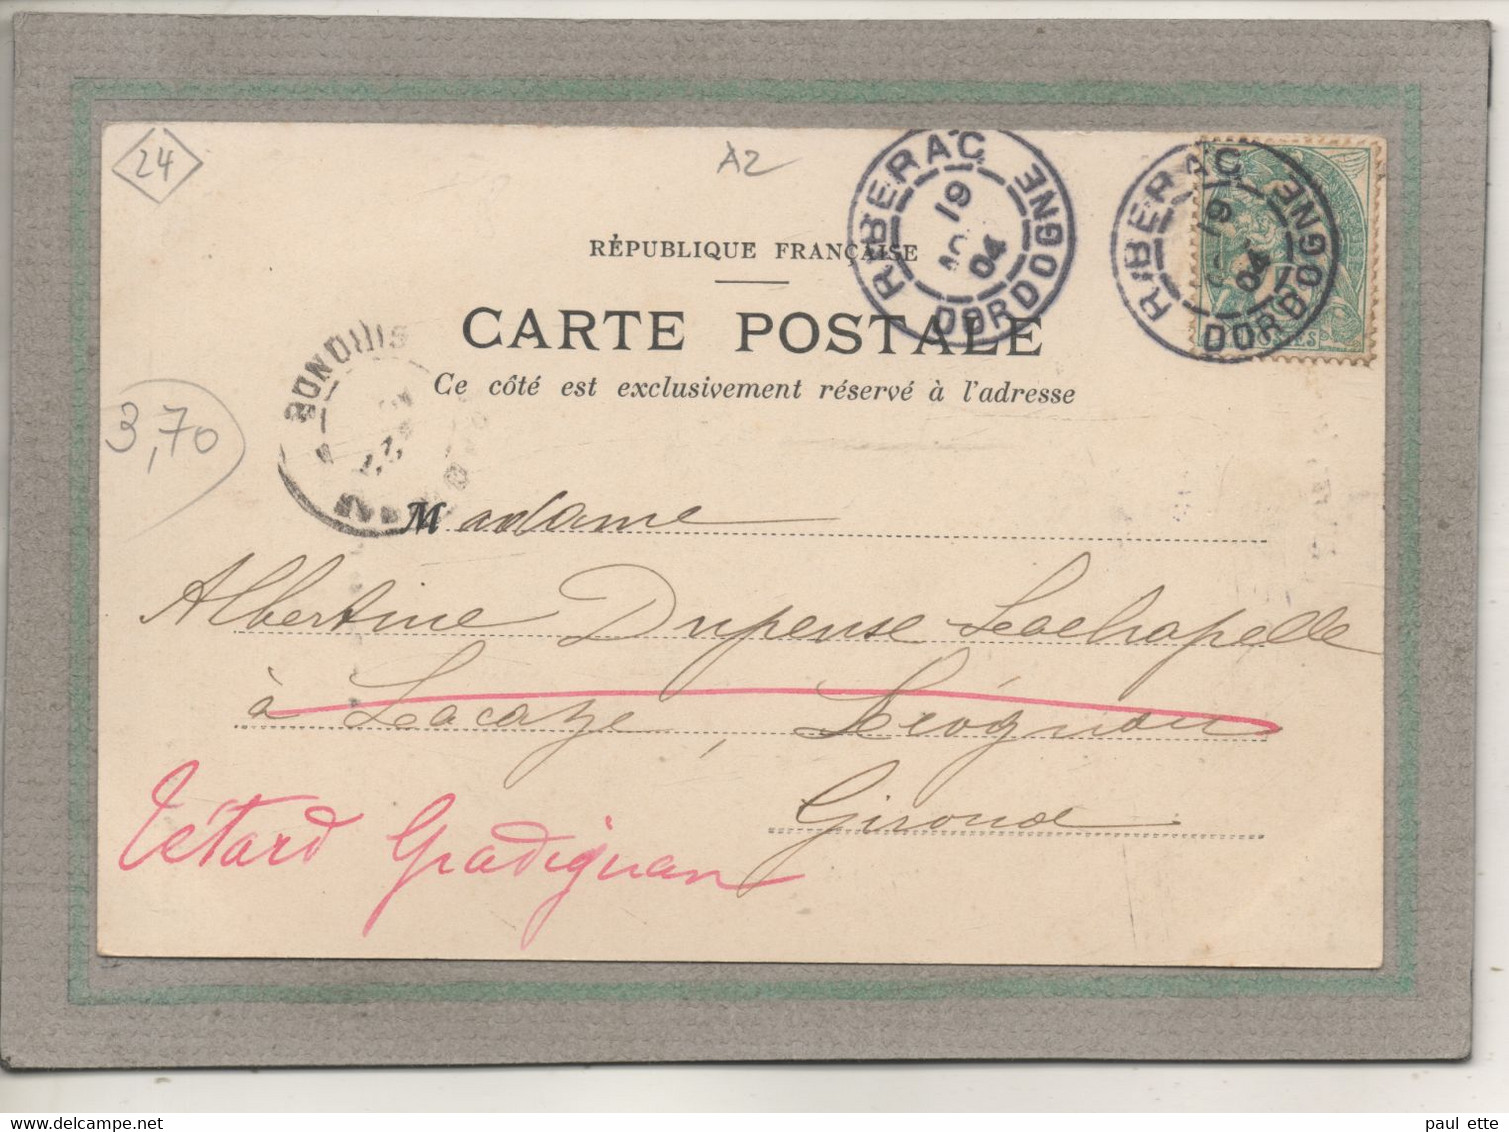 24
A2
RIBERAC DORDOGNE
19
04
RIBERAC DORDOGNE
19
04
RÉPUBLIQUE FRANÇAISE
CARTE POSTALE
Ce côté est exclusivement réservé à l'adresse
3,70
Madame
Albertine Dupeuse Lachapelle
à Lacaze, Léognan
Gironde
Tétard Gradignan
www.delcampe.net
paul ette